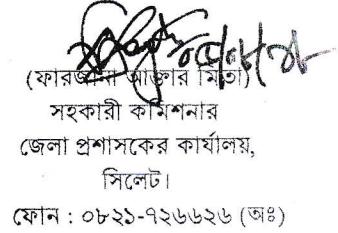 (ফারজানা আক্তার মিতা)
সহকারী কমিশনার
জেলা প্রশাসকের কার্যালয়,
সিলেট।
ফোন : ০৮২১-৭২৬৬২৬ (অঃ)